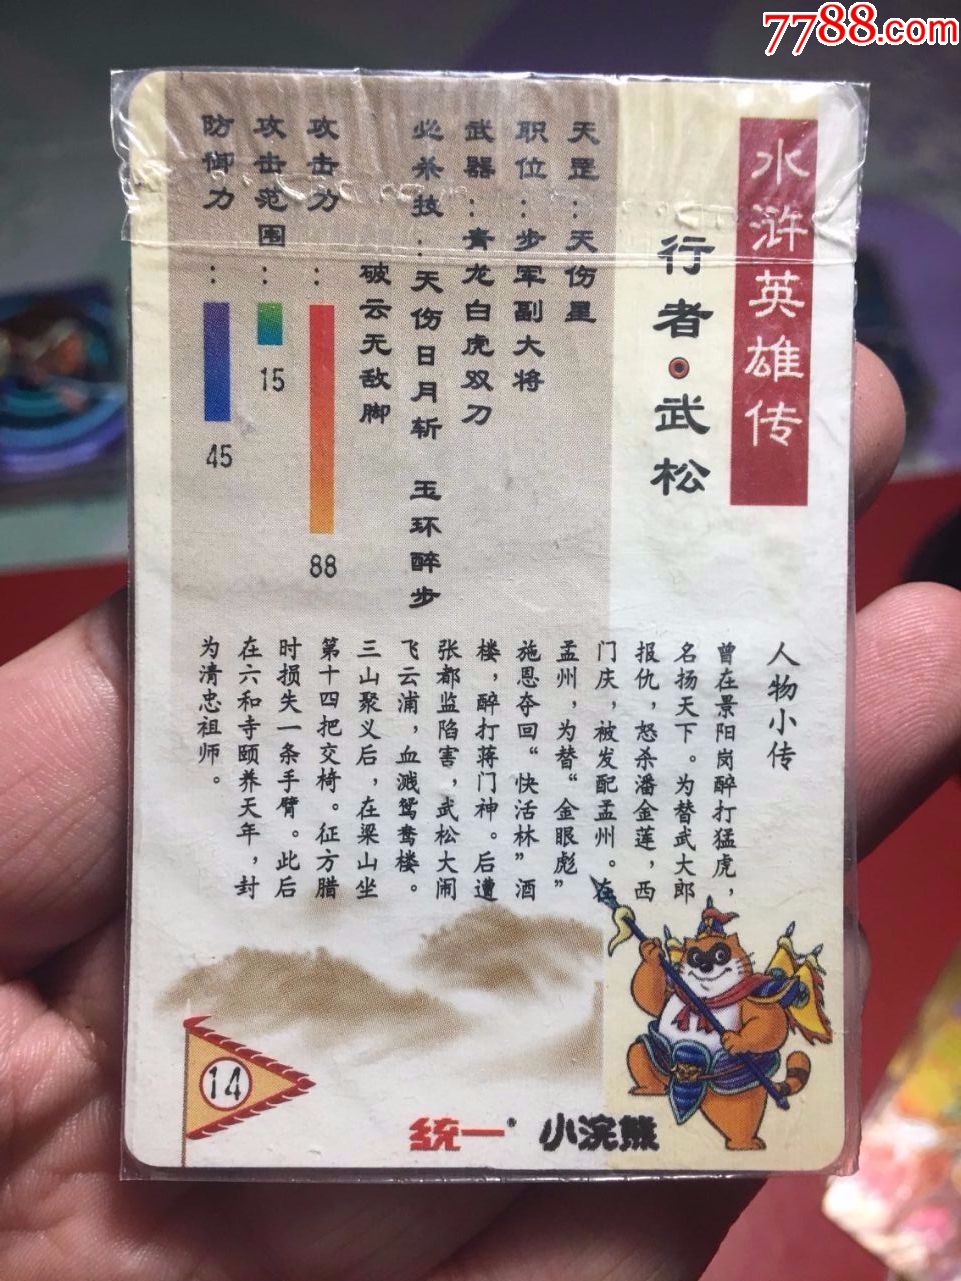 7788.com
水浒英雄传
行者·武松
天罡：天伤星
职位：步军副大将
武器：青龙白虎双刀
必杀技：天伤日月斩 玉环醉步
破云无敌脚
攻击力：88
攻击范围：15
防御力：45
人物小传
曾在景阳岗醉打猛虎，
名扬天下。为替武大郎
报仇，怒杀潘金莲，西
门庆，被发配孟州。在
孟州，为替“金眼彪”
施恩夺回“快活林”酒
楼，醉打蒋门神。后遭
张都监陷害，武松大闹
飞云浦，血溅鸳鸯楼。
三山聚义后，在梁山坐
第十四把交椅。征方腊
时损失一条手臂。此后
在六和寺颐养天年，封
为清忠祖师。
14
统一 小浣熊